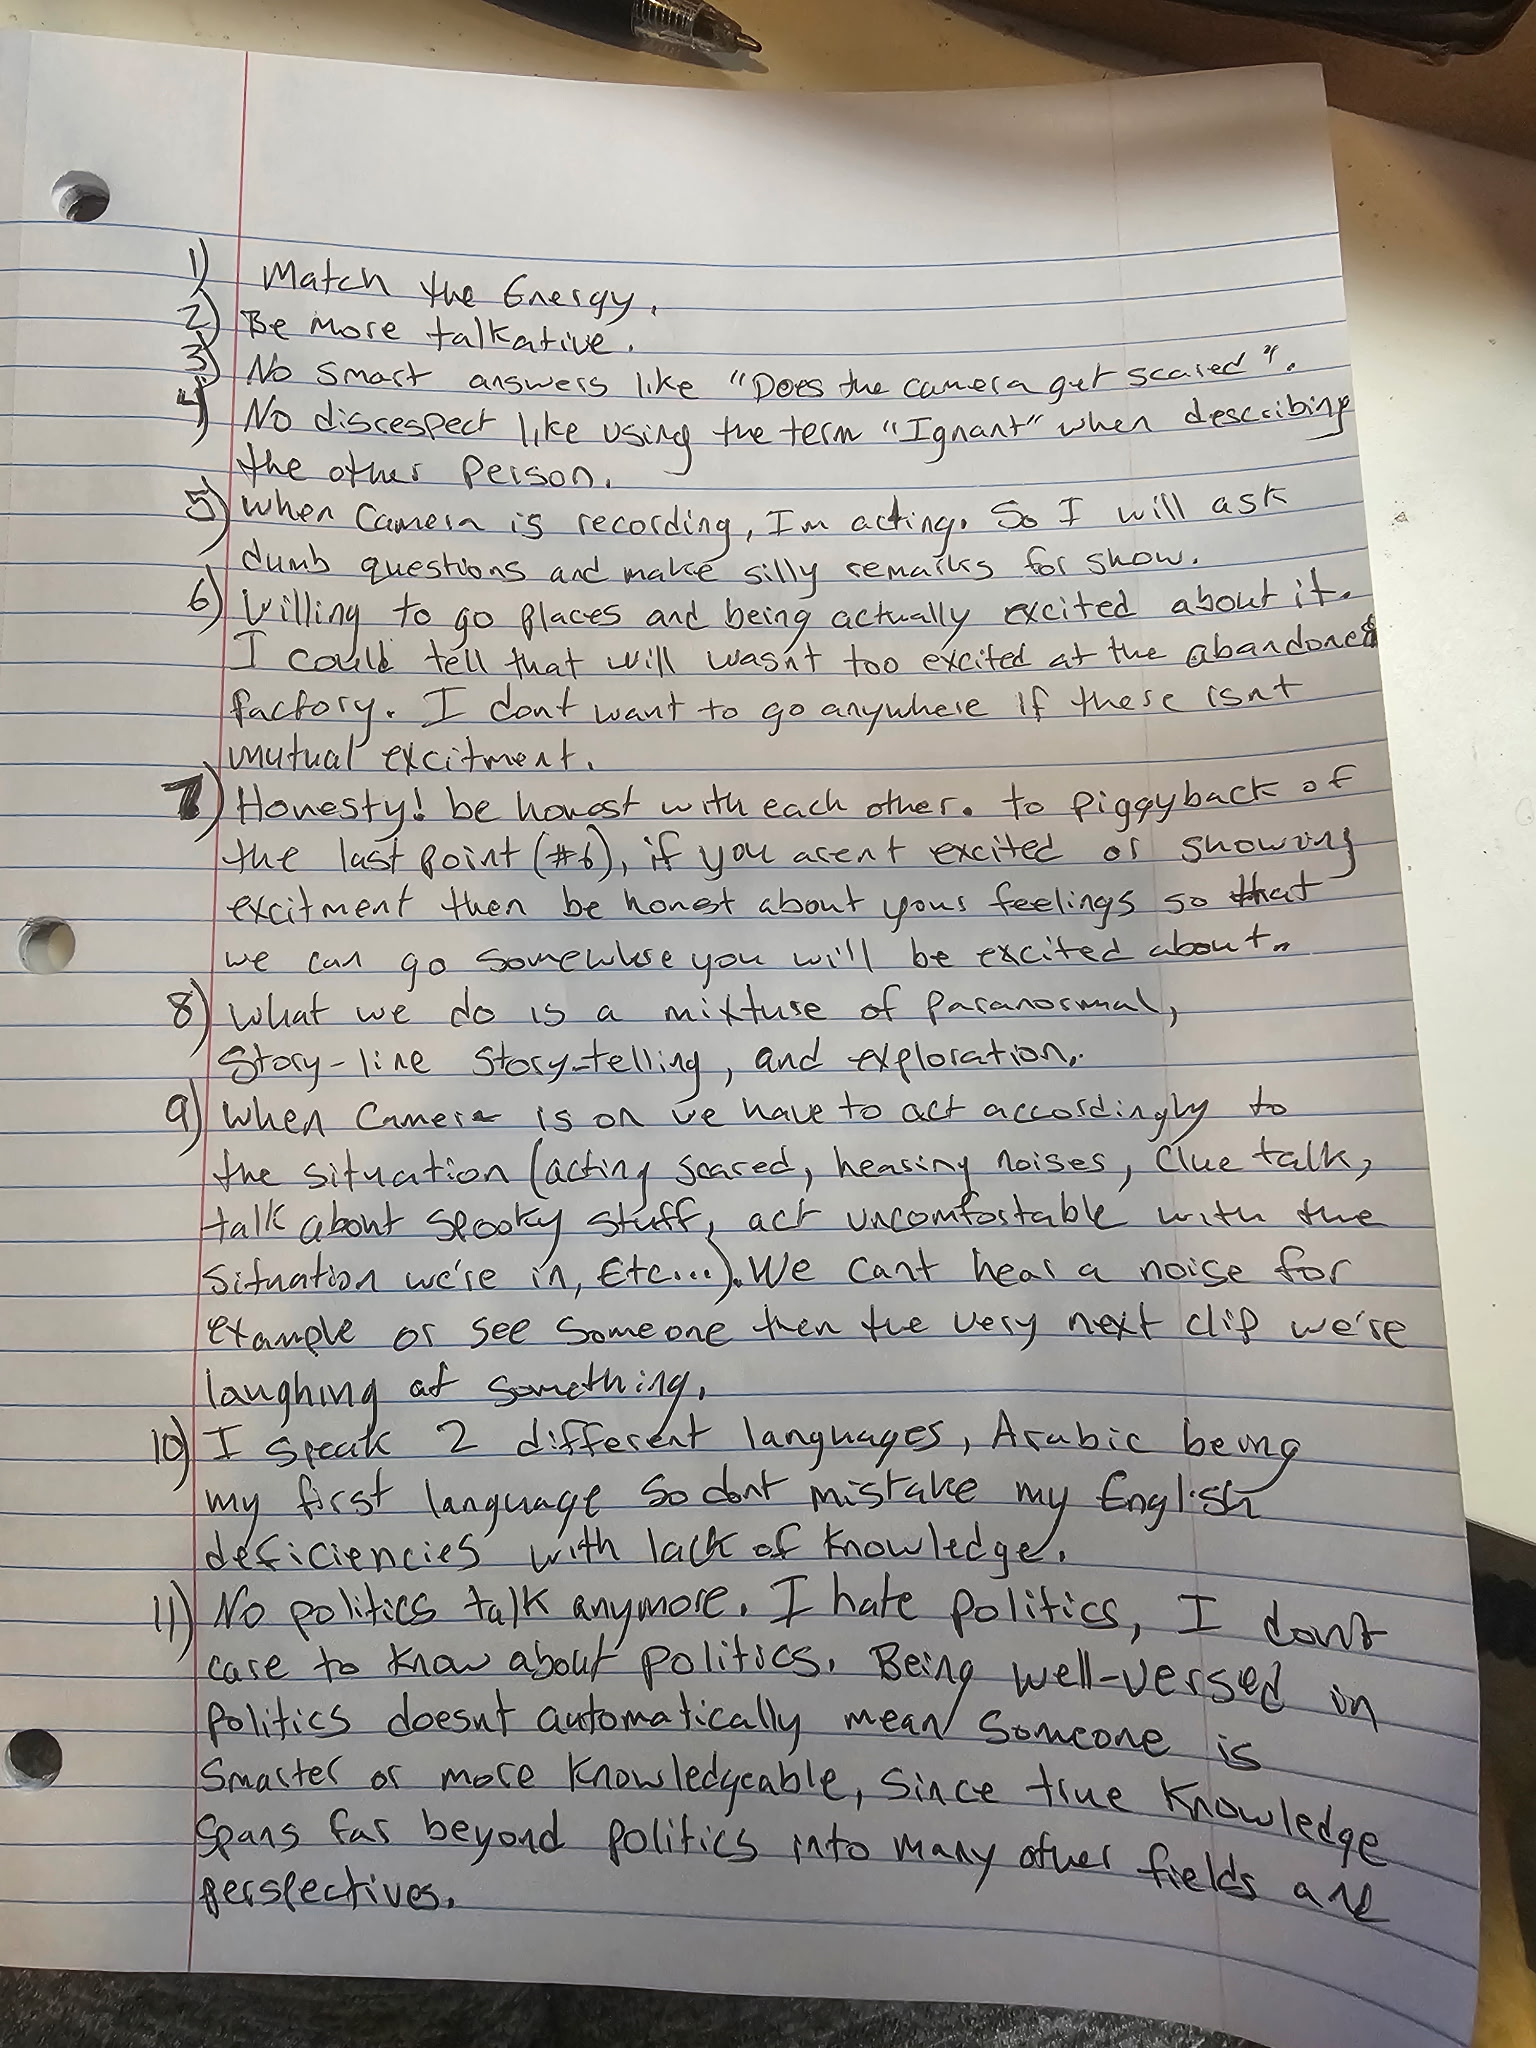 1) Match the Energy.
2) Be More talkative.
3) No smart answers like "Does the camera get scared".
4) No disrespect like using the term "Ignant" when describing
the other Person.
5) When Camera is recording, Im acting. So I will ask
dumb questions and make silly remarks for show.
6) Willing to go places and being actually excited about it.
I could tell that will wasnt too excited at the abandoned
factory. I dont want to go anywhere if there isnt
mutual excitment.
7) Honesty! be honest with each other. to piggyback of
the last point (#6), if you arent excited or showing
excitment then be honest about your feelings so that
we can go somewhere you will be excited about.
8) What we do is a mixture of Paranormal,
Story-line Story-telling, and exploration.
9) When Camera is on we have to act accordingly to
the situation (acting scared, hearing noises, Clue talk,
talk about spooky stuff, act uncomfortable with the
situation we're in, Etc...). We cant hear a noise for
example or see someone then the very next clip we're
laughing at something.
10) I speak 2 different languages, Arabic being
my first language so dont mistake my English
deficiencies with lack of Knowledge.
11) No politics talk anymore. I hate politics, I dont
care to know about politics. Being well-versed in
Politics doesnt automatically mean someone is
Smarter or more Knowledgeable, Since true Knowledge
Spans far beyond politics into many other fields and
perspectives.